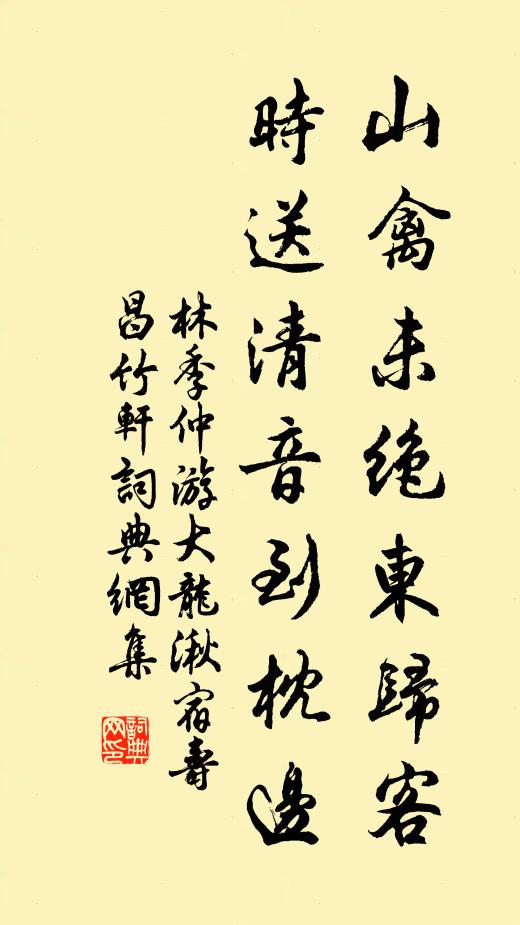 山禽未絶東歸客
時送清音到枕邊
林季仲游大龍湫宿壽
昌竹軒詞典網集
詞典
网印